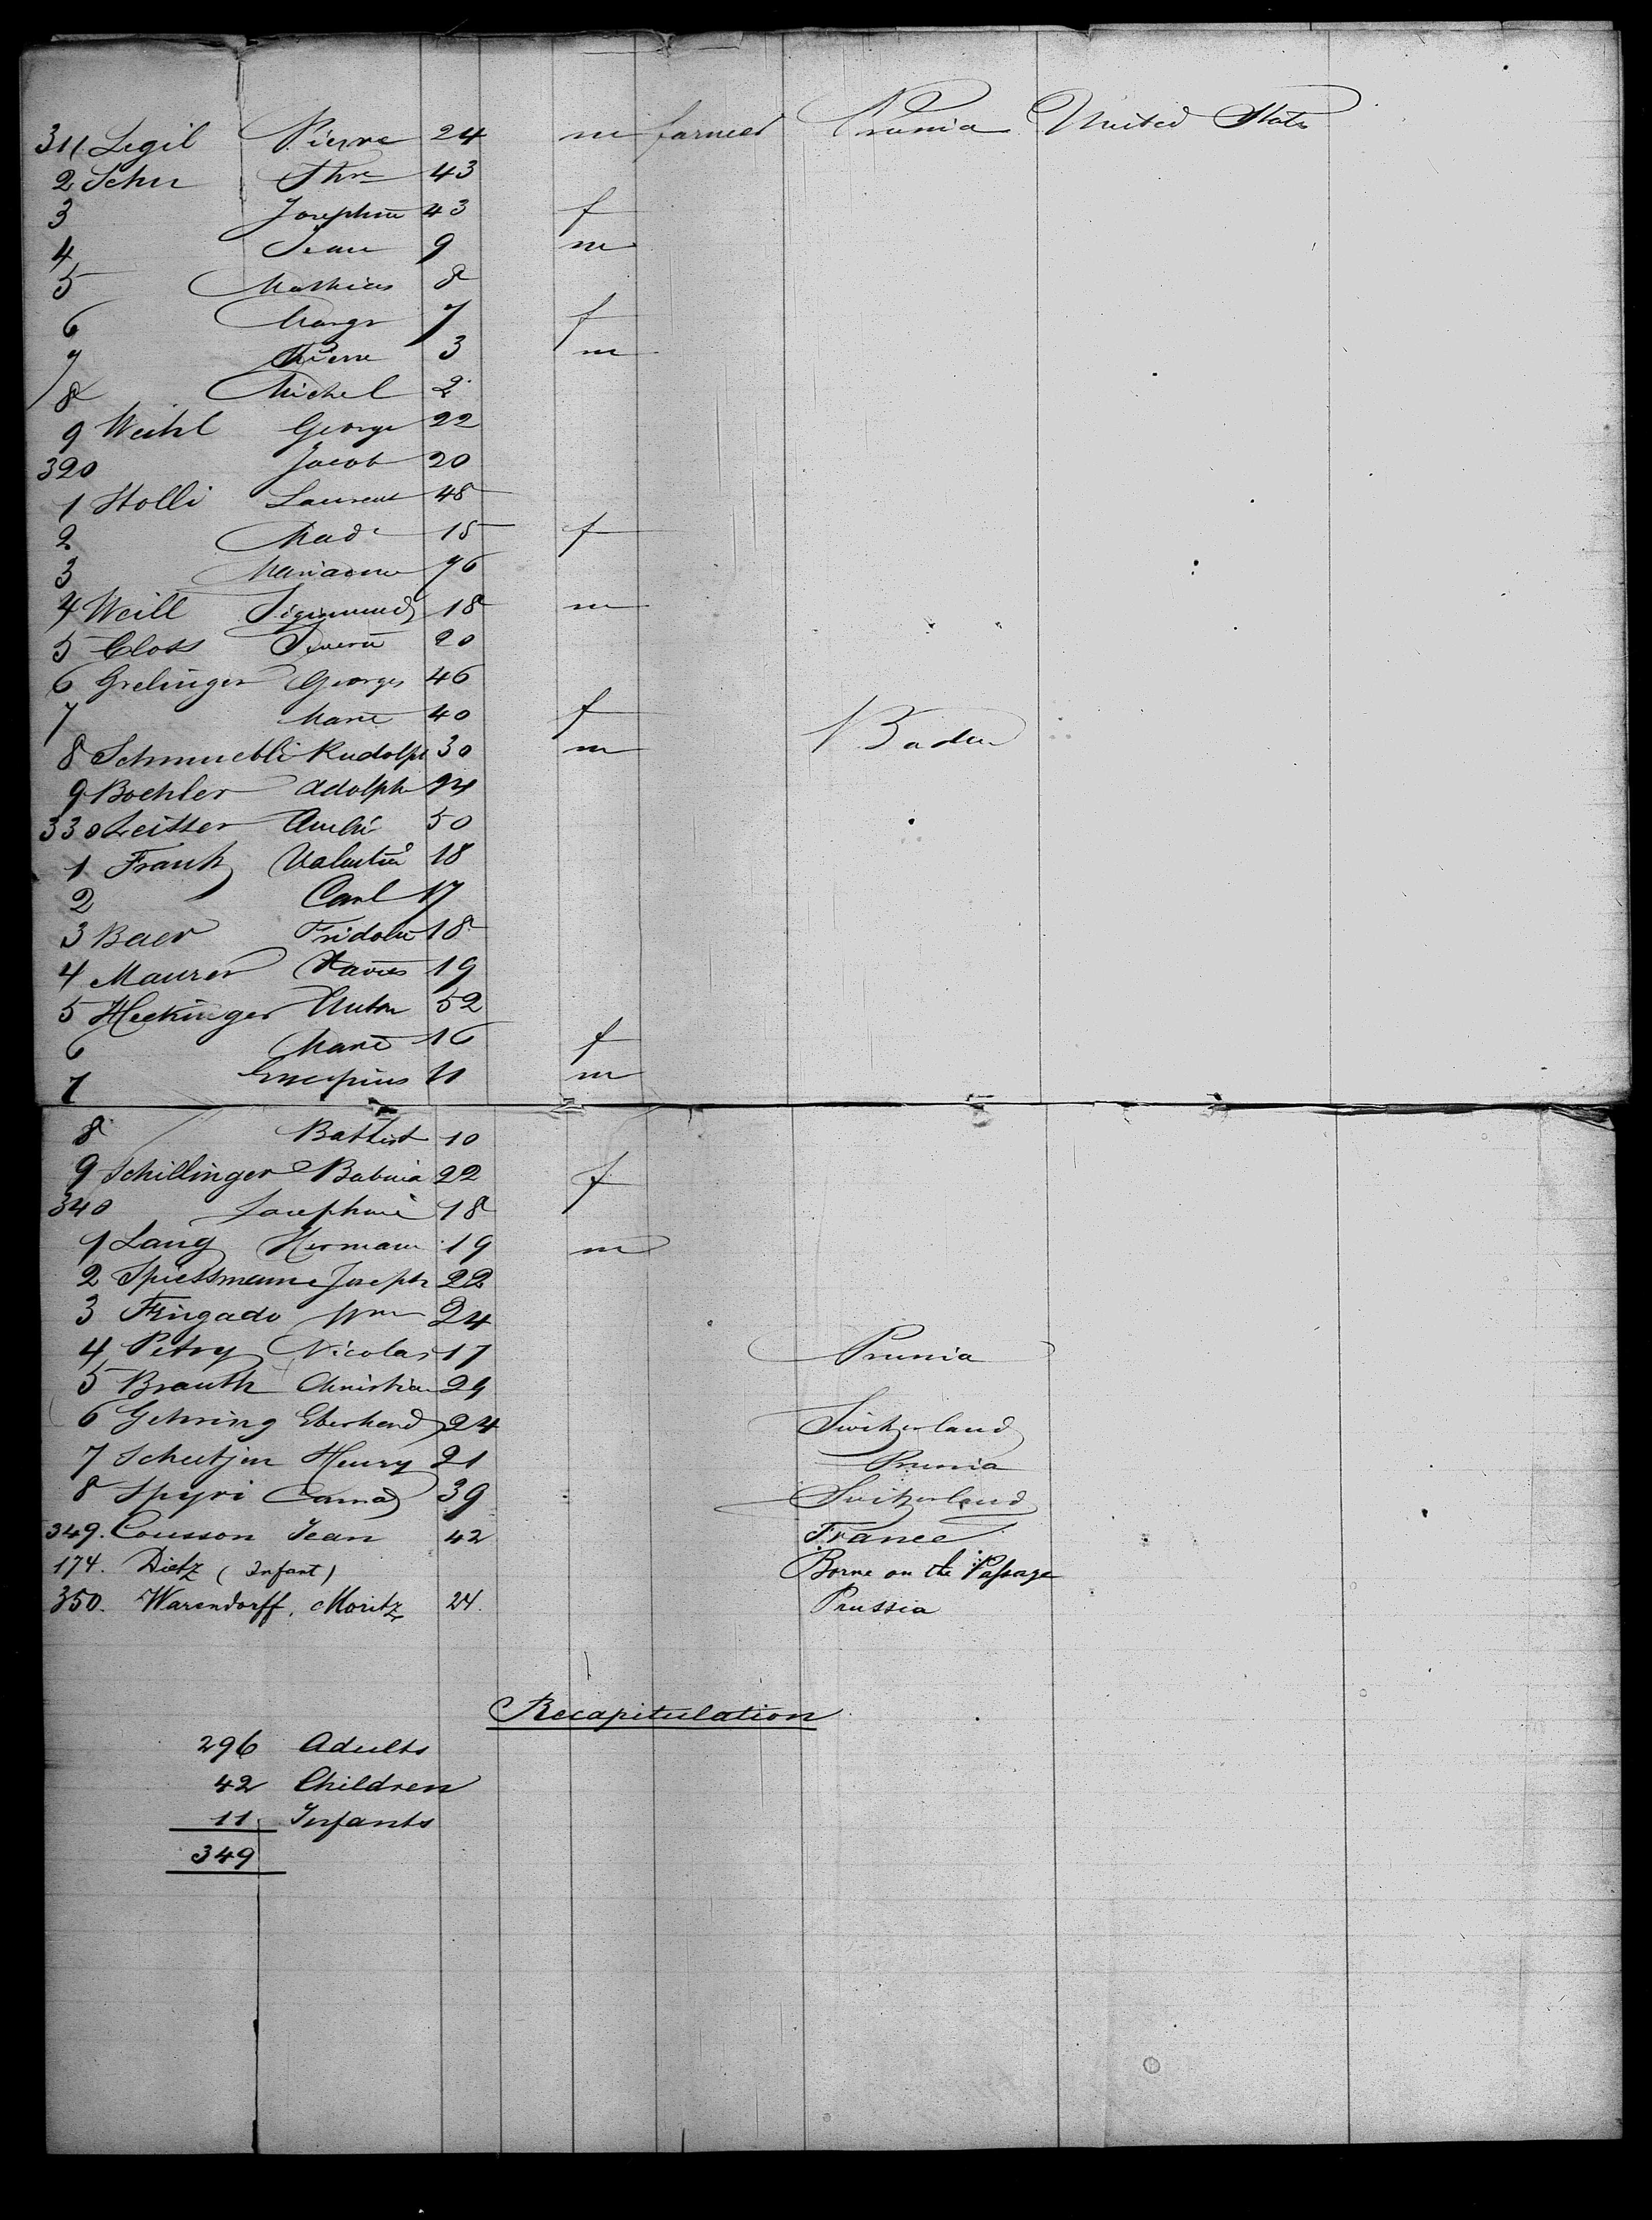 311 Legil Pierre 24 m farmer Prussia United States
2 Schu 43
3 Josephine 43 f
4 Jean 9 m
5 Mathias 8
6 Margr 7 f
7 Pierre 3 m
8 Michel 2
9 Weihl George 22
320 Jacob 20
1 Stolli Laurent 48
2 Mad 15 f
3 Marianne 76
4 Weill Sigismund 18 m
5 Closs 20
6 Grelinger Georges 46
7 Marie 40 f
8 Schmuckli Rudolph 30 m Baden
9 Boehler Adolph 24
330 Leitter 50
1 Frank Valentin 18
2 Carl 17
3 Baer Fridolin 18
4 Maurer Xavier 19
5 Heckinger Anton 52
6 Marie 16 f
7 11 m
8 Battist 10
9 Schillinger 22 f
340 Josephine 18
1 Lang Hermann 19 m
2 Spiessmann Joseph 22
3 Fringado Wm 24
4 Petry Nicolas 17 Prussia
5 Brauth Christian 24
6 Gehring Eberhard 24 Switzerland
7 Schutjen Henry 21 Prussia
8 Spyri Conrad 39 Switzerland
349. Cousson Jean 42 France
174. Dietz (Infant) Borne on the Passage
350. Warendorff, Moritz 24. Prussia
Recapitulation
296 Adults
42 Children
11 Infants
349